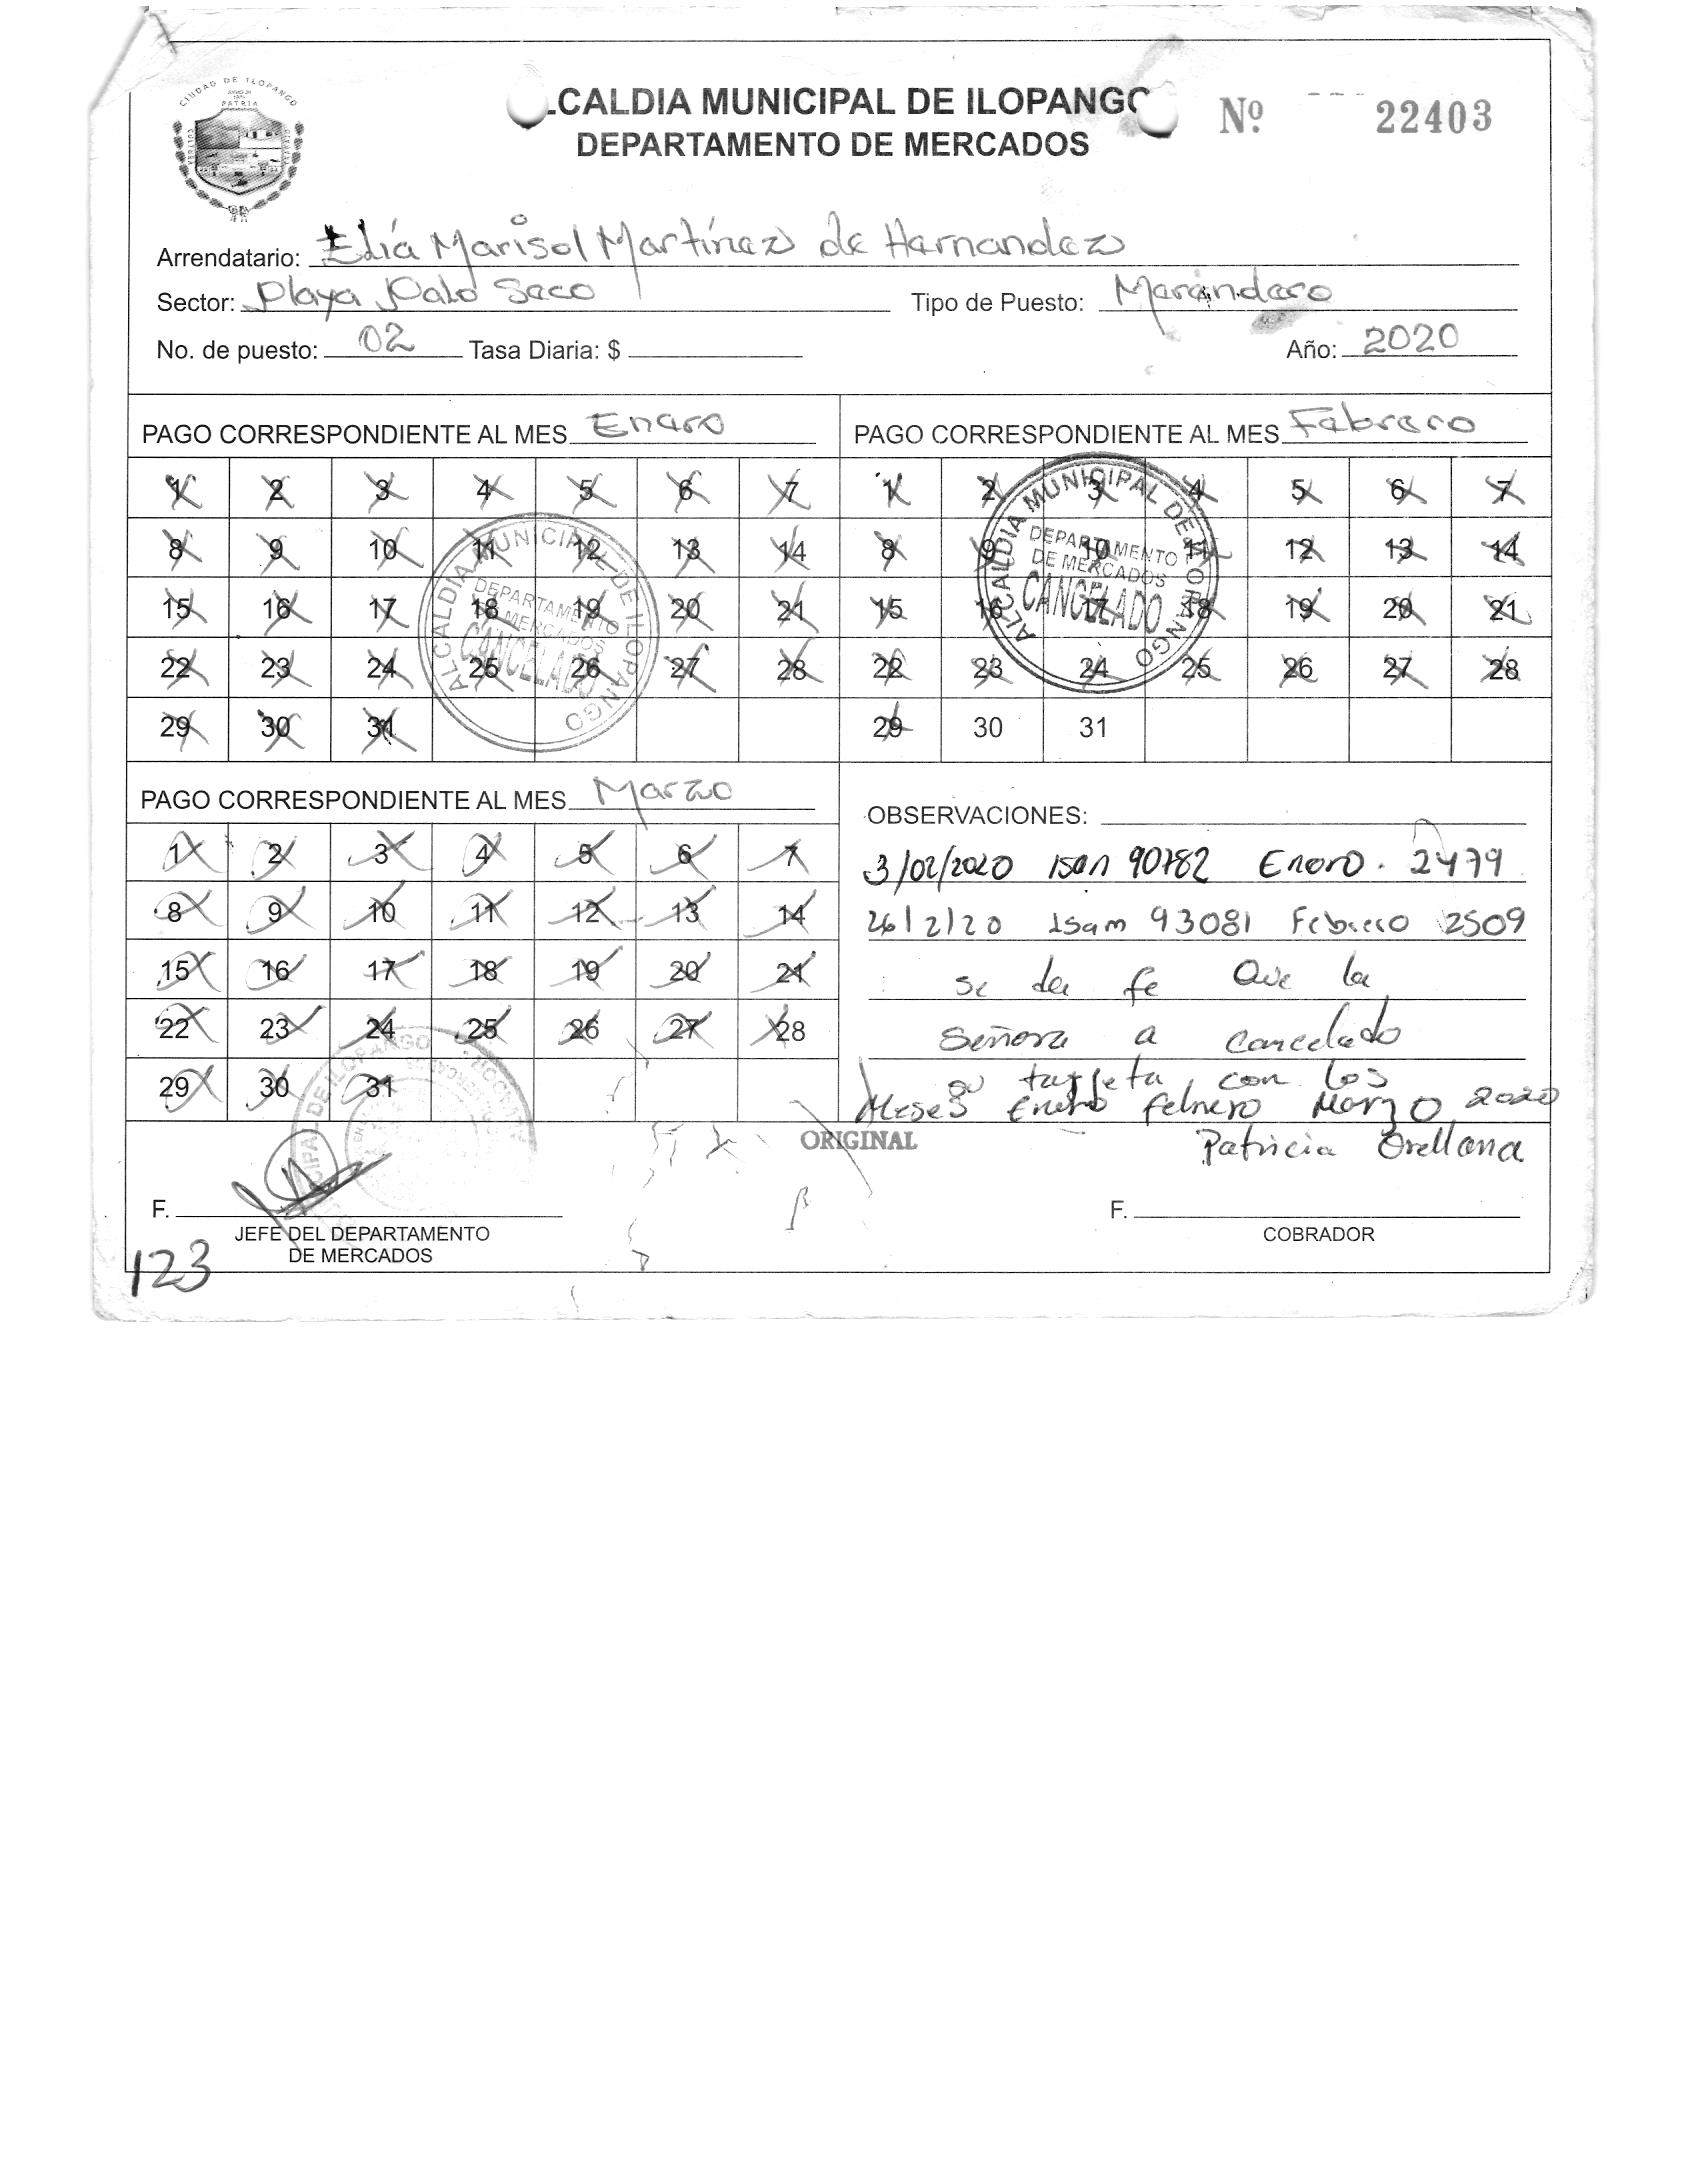 CIUDAD DE ILOPANGO
PATRIA
CULTURA
LCALDIA MUNICIPAL DE ILOPANGO
DEPARTAMENTO DE MERCADOS
Nº 22403
Arrendatario: Elía Marisol Martínez de Hernandez
Sector: Playa Palo Seco Tipo de Puesto: Merendero
No. de puesto: 02 Tasa Diaria: $ Año: 2020
PAGO CORRESPONDIENTE AL MES Enero
1 2 3 4 5 6 7
8 9 10 11 12 13 14
15 16 17 18 19 20 21
22 23 24 25 26 27 28
29 30 31
ALCALDIA MUNICIPAL DE ILOPANGO
DEPARTAMENTO
DE MERCADOS
CANCELADO
PAGO CORRESPONDIENTE AL MES Febrero
1 2 3 4 5 6 7
8 9 10 11 12 13 14
15 16 17 18 19 20 21
22 23 24 25 26 27 28
29 30 31
ALCALDIA MUNICIPAL DE ILOPANGO
DEPARTAMENTO
DE MERCADOS
CANCELADO
PAGO CORRESPONDIENTE AL MES Marzo
1 2 3 4 5 6 7
8 9 10 11 12 13 14
15 16 17 18 19 20 21
22 23 24 25 26 27 28
29 30 31
OBSERVACIONES:
3/02/2020 isam 90782 Enero. 2479
26/2/20 isam 93081 Febrero 2509
se da fe Que la
Señora a cancelado
su tarjeta, con los
Meses Enero Febrero Marzo 2020
Patricia Orellana
ORIGINAL
CIPAL DE ILOPANGO
F. F.
JEFE DEL DEPARTAMENTO COBRADOR
DE MERCADOS
123